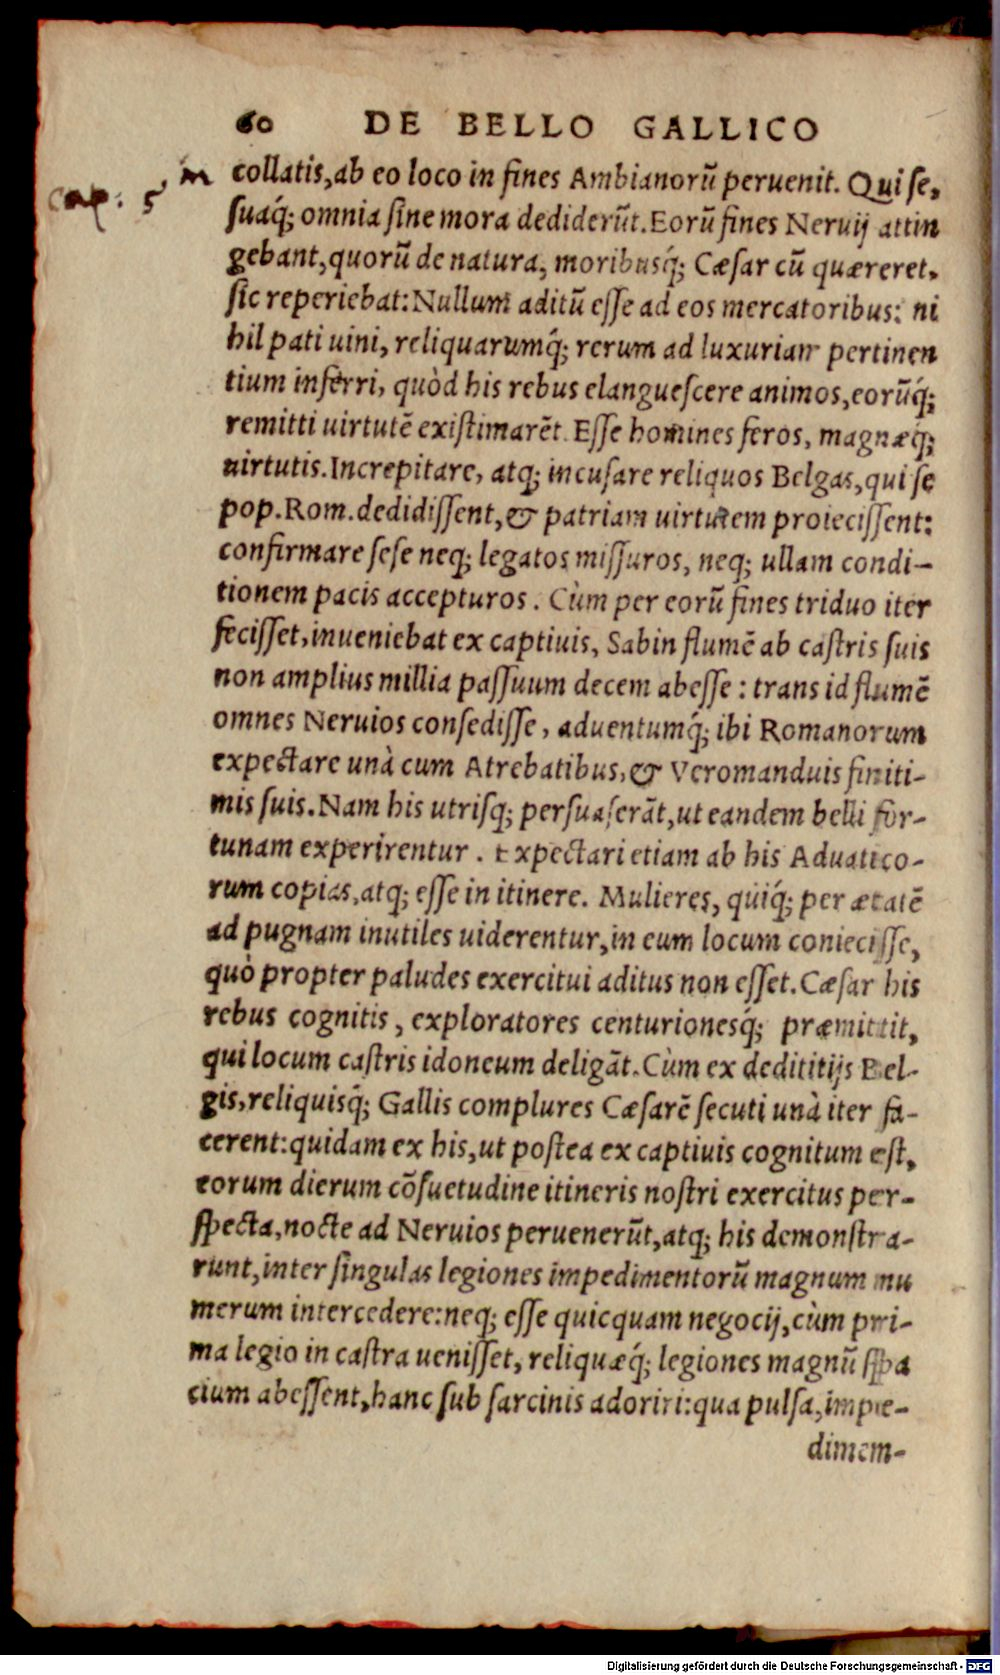 60 DE BELLO GALLICO
cap: 5
collatis, ab eo loco in fines Ambianorũ peruenit. Qui se,
suaq́; omnia sine mora dediderũt. Eorũ fines Neruij attin
gebant, quorũ de natura, moribusq́; Cæsar cũ quæreret,
sic reperiebat: Nullum aditũ esse ad eos mercatoribus: ni
hil pati uini, reliquarumq́; rerum ad luxuriam pertinen
tium inferri, quòd his rebus elanguescere animos, eorũq́;
remitti uirtutẽ existimarẽt. Esse homines feros, magnæq́;
uirtutis. Increpitare, atq; incusare reliquos Belgas, qui se
pop. Rom. dedidissent, & patriam uirtutem proiecissent:
confirmare sese neq; legatos missuros, neq; ullam condi-
tionem pacis accepturos. Cùm per eorũ fines triduo iter
fecisset, inueniebat ex captiuis, Sabin flumẽ ab castris suis
non amplius millia passuum decem abesse: trans id flumẽ
omnes Neruios consedisse, aduentumq́; ibi Romanorum
expectare unà cum Atrebatibus, & Veromanduis finiti-
mis suis. Nam his utrisq; persuaserãt, ut eandem belli for-
tunam experirentur. Expectari etiam ab his Aduatico-
rum copias, atq; esse in itinere. Mulieres, quiq́; per ætatẽ
ad pugnam inutiles uiderentur, in eum locum coniecisse,
quò propter paludes exercitui aditus non esset. Cæsar his
rebus cognitis, exploratores centurionesq́; præmittit,
qui locum castris idoneum deligãt. Cùm ex dedititijs Bel-
gis, reliquisq́; Gallis complures Cæsarẽ secuti unà iter fa-
cerent: quidam ex his, ut postea ex captiuis cognitum est,
eorum dierum cõsuetudine itineris nostri exercitus per-
specta, nocte ad Neruios peruenerũt, atq; his demonstra-
runt, inter singulas legiones impedimentorũ magnum nu
merum intercedere: neq; esse quicquam negocij, cùm pri-
ma legio in castra uenisset, reliquæq́; legiones magnũ spa
cium abessent, hanc sub sarcinis adoriri: qua pulsa, impe-
dimem-
Digitalisierung gefördert durch die Deutsche Forschungsgemeinschaft - DFG